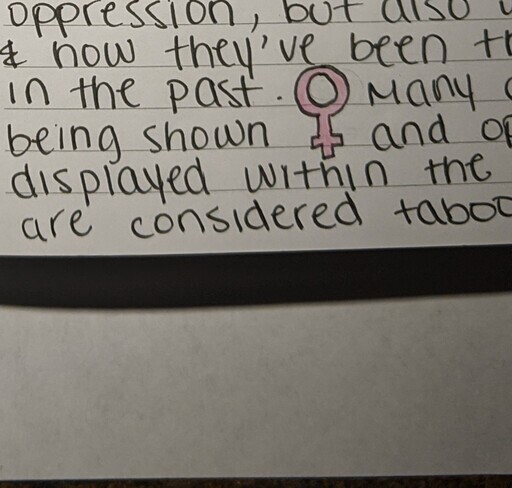 oppression, but also
& how they've been
in the past. ♀ Many
being shown and
displayed within the
are considered taboo